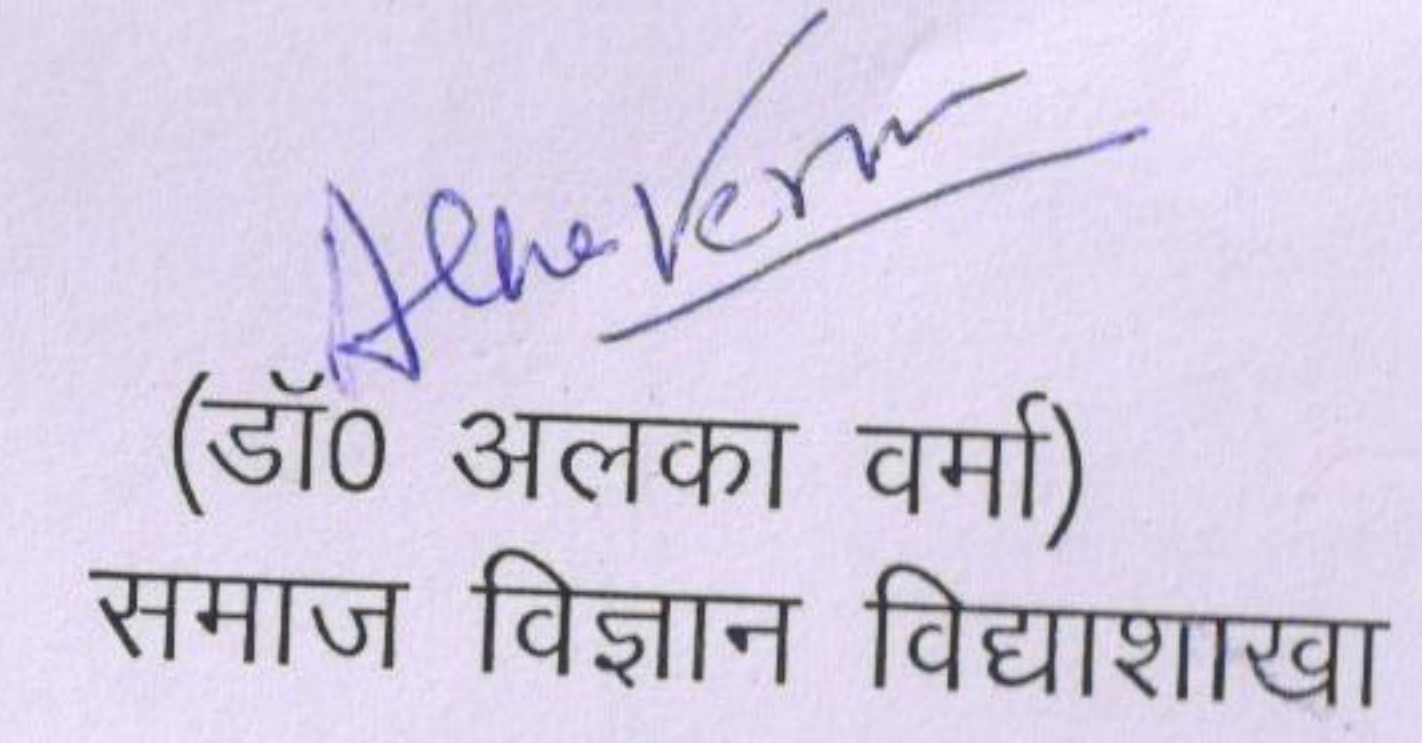 Alka Verma
(डॉ0 अलका वर्मा)
समाज विज्ञान विद्याशाखा